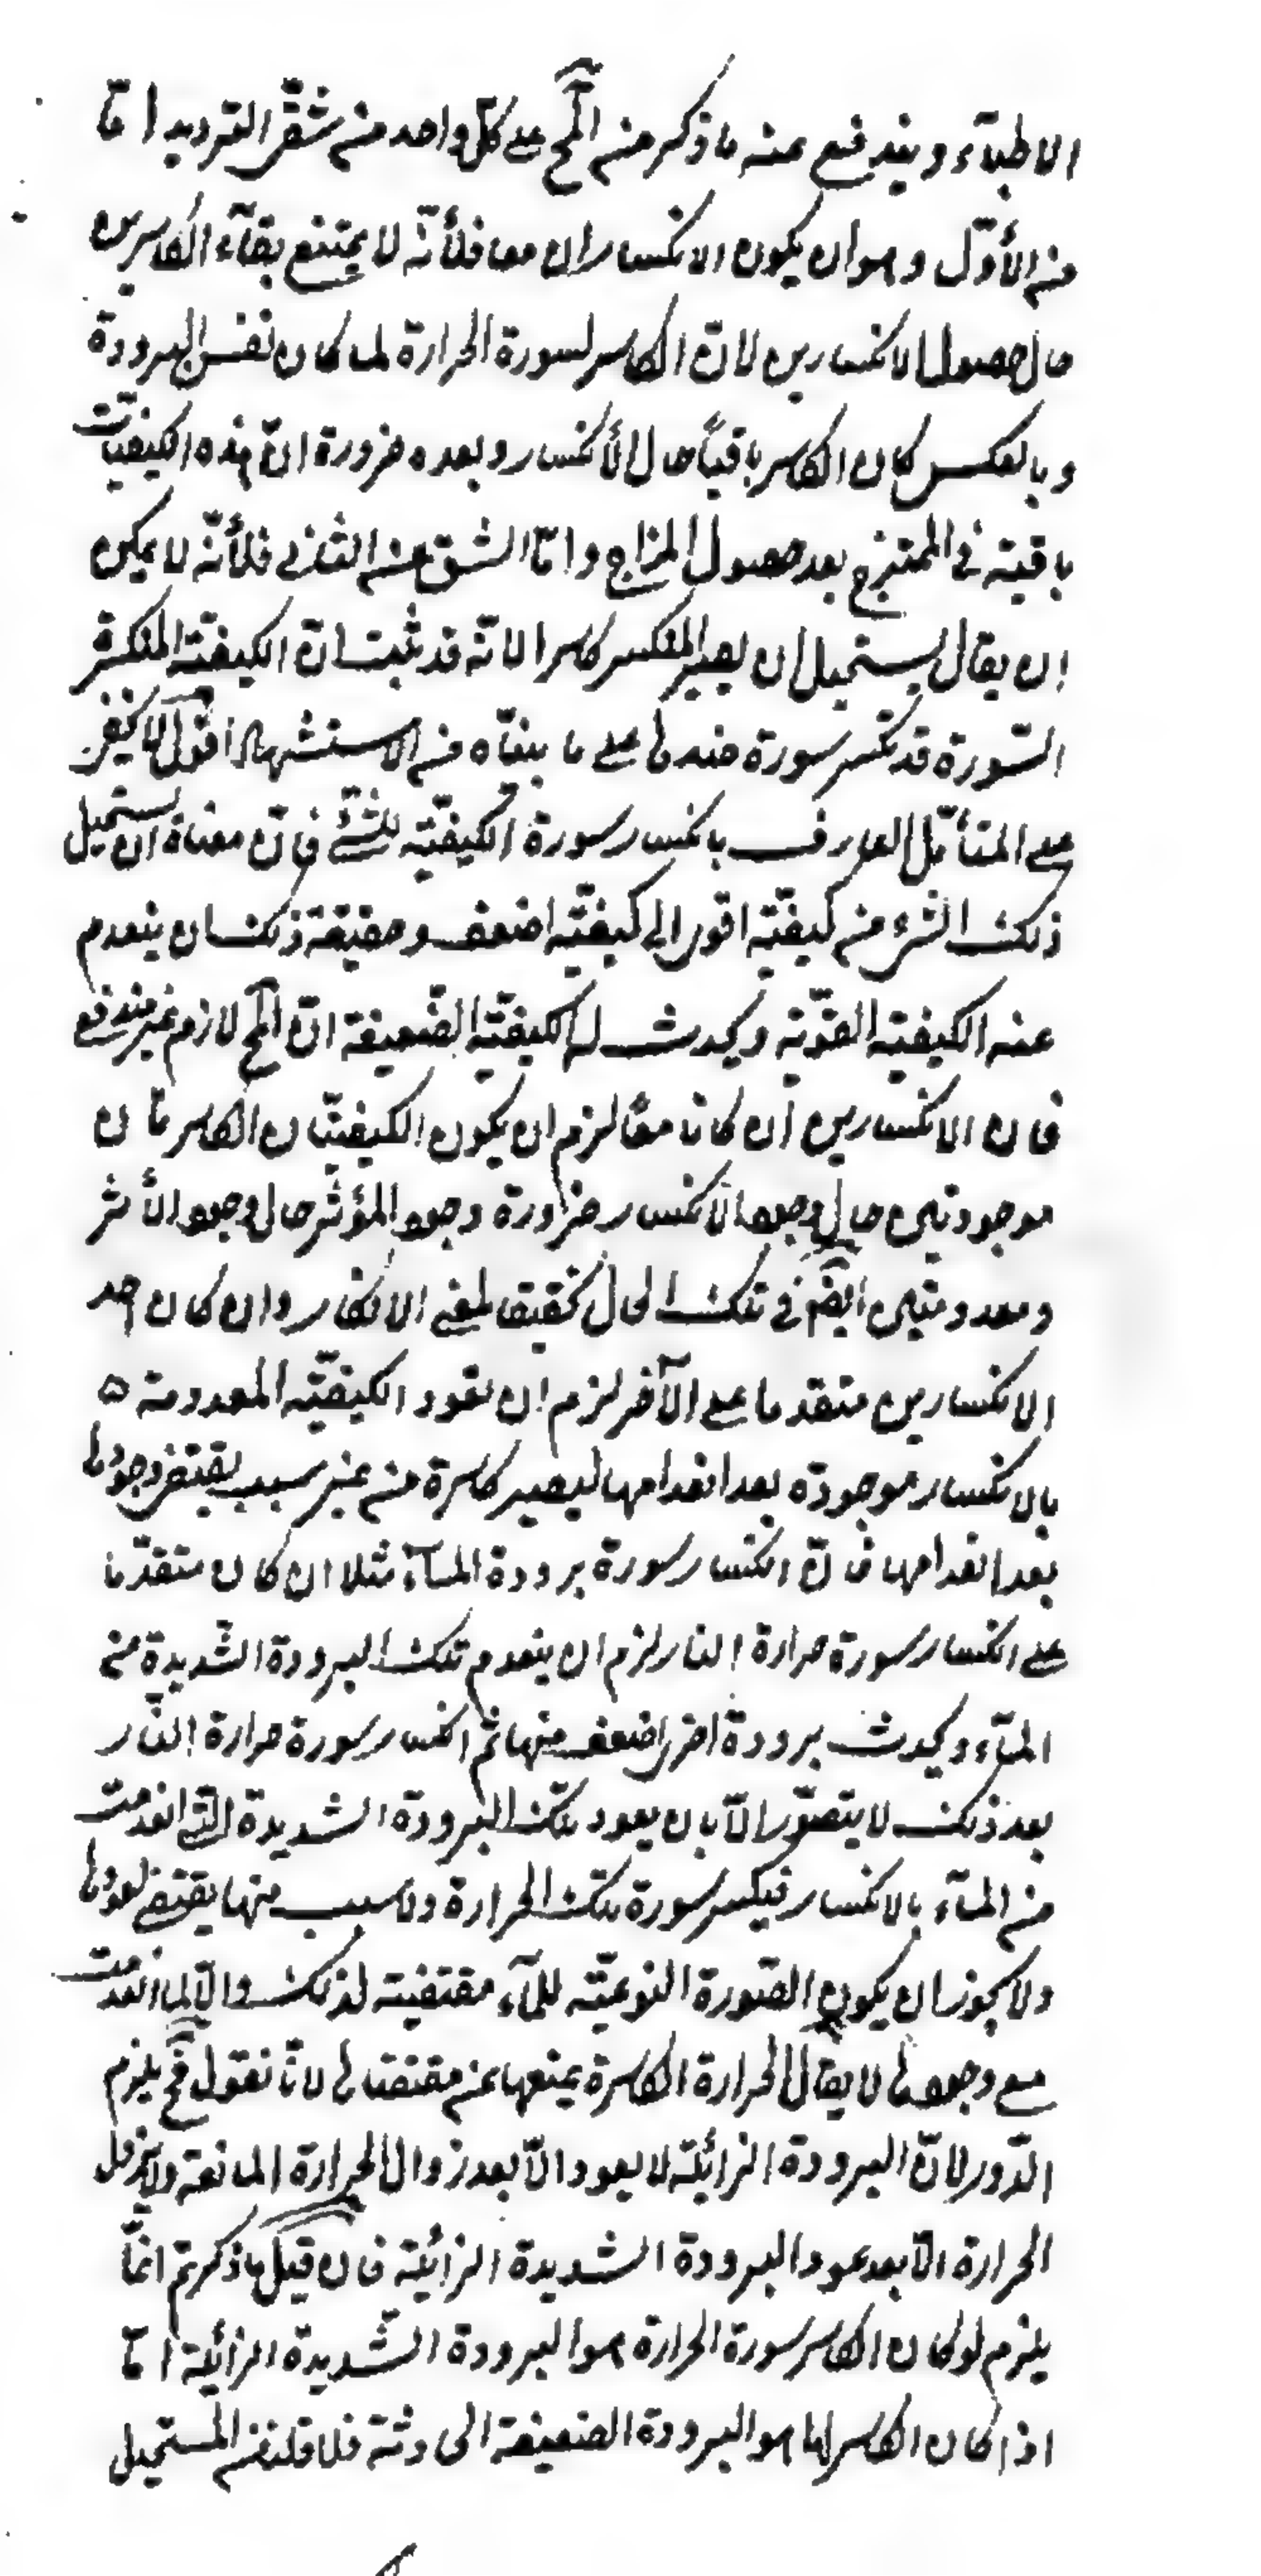 الاطبآء ويندفع عنه ما ذكر من المح على كل واحد من شقى الترديد امّا
من الأوّل وهو ان يكون الانكساران معا فلأنّه لا يمتنع بقآء الكاسرين
حال حصول الانكسارين لانّ الكاسر لسورة الحرارة لما كان نفس البرودة
وبالعكس كان الكاسر باقياً حال الأنكسار وبعده ضرورة انّ هذه الكيفيّات
باقية فى الممتزج بعد حصول المزاج وامّا الشق من الثانى فلأنّه لا يمكن
ان يقال يستحيل ان يصير المنكسر كاسرا لانّه قد ثبت انّ الكيفيّة المنكسرة
السّورة قد تكسر سورة ضدها على ما بيناه من الاستشهاد اقول لا يخفى
على المتأمّل العارف بانكسار سورة الكيفيّة للشئ فانّ معناه ان يستحيل
ذلك الشئ من كيفيّة اقوى الى كيفيّة اضعف وحقيقة ذلك ان ينعدم
عنه الكيفية القوّية ويحدث له الكيفيّة الضّعيفة انّ المح لازم غير مندفع
فان الانكسارين ان كانا معًا لزم ان يكون الكيفيّتان الكاسرتان
موجودتين حال وجود الانكسار ضرورة وجود المؤثّر حال وجود الأثر
ومعدومتين ايضم فى تلك الحال تحقيقا لمعنى الانكسار وان كان احد
الانكسارين متقدما على الآخر لزم ان تعود الكيفيّة المعدومة ه
بالانكسار موجودة بعد انعدامها ليصير كاسرة من غير سبب يقتضى وجودها
بعد انعدامها فانّ انكسار سورة برودة المآء مثلا ان كان متقدّما
على انكسار سورة حرارة النار لزم ان ينعدم تلك البرودة الشّديدة من
المآء ويحدث برودة اخرى اضعف منها ثم انكسار سورة حرارة النّار
بعد ذلك لا يتصوّر الّا بان يعود تلك البرودة الشديدة الّتى انعدمت
من المآء بالانكسار فيكسر سورة تلك الحرارة ولا سبب منها يقتضى لعودها
ولا يجوز ان يكون الصّورة النوعيّة للمآء مقتضية لذلك والّا لما انعدمت
مع وجودها لا يقال الحرارة الكاسرة يمنعها عن مقتضاها لانّا نقول فح يلزم
الدّور لانّ البرودة الزائلة لا يعود الّا بعد زوال الحرارة المانعة ولا يزول
الحرارة الّا بعد عود البرودة الشديدة الزائلة فان قيل ما ذكرتم انمّا
يلزم لو كان الكاسر سورة الحرارة هو البرودة الشّديدة الزائلة امّا
اذا كان الكاسر لها هو البرودة الضعيفة الحادثة فلا قلنا من المستحيل